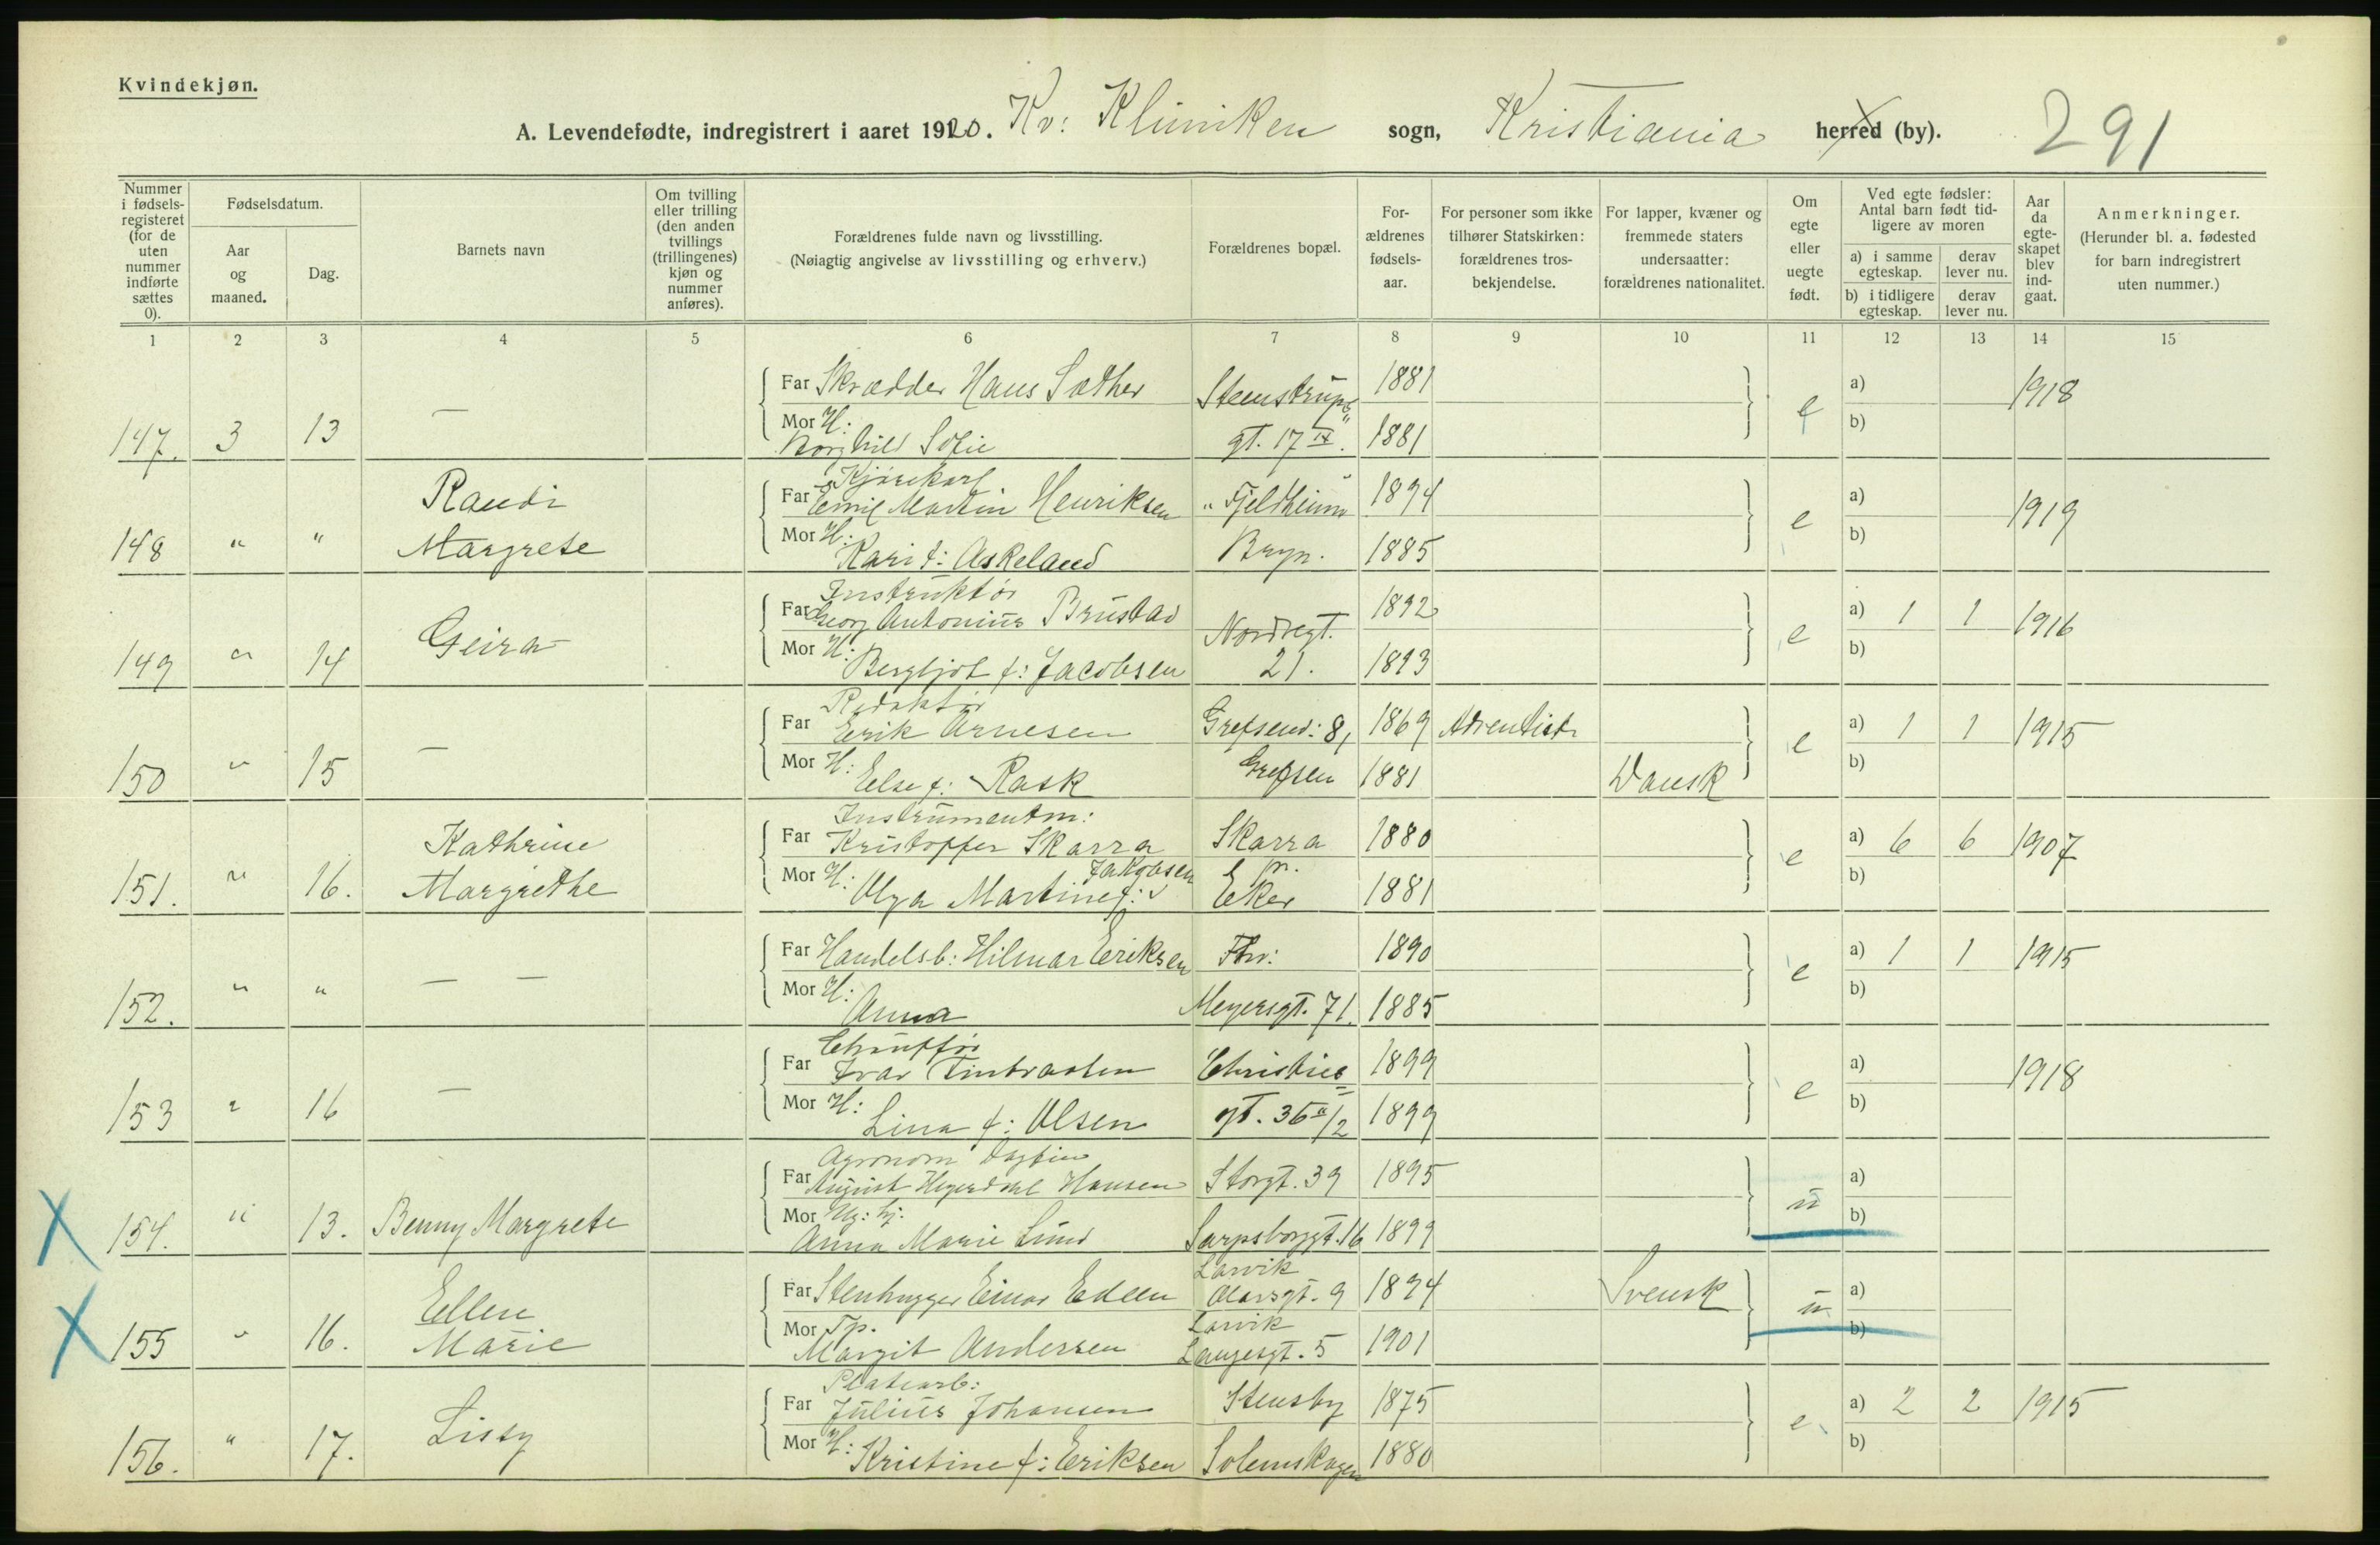 Kvindekjøn.
A. Levendefødte, indregistrert i aaret 1920. Kv: Kliniken sogn, Kristiania herred (by). 291
Nummer i fødsels-registeret (for de uten nummer indførte sættes 0).
Fødselsdatum.
Aar og maaned.
Dag.
Barnets navn
Om tvilling eller trilling (den anden tvillings (trillingenes) kjøn og nummer anføres).
Forældrenes fulde navn og livsstilling.
(Nøiagtig angivelse av livsstilling og erhverv.)
Forældrenes bopæl.
For-ældrenes fødsels-aar.
For personer som ikke tilhører Statskirken: forældrenes tros-bekjendelse.
For lapper, kvæner og fremmede staters undersaatter: forældrenes nationalitet.
Om egte eller uegte født.
Ved egte fødsler: Antal barn født tid-ligere av moren
a) i samme egteskap.
derav lever nu.
b) i tidligere egteskap.
derav lever nu.
Aar da egte-skapet blev ind-gaat.
Anmerkninger.
(Herunder bl. a. fødested for barn indregistrert uten nummer.)
1 2 3 4 5 6 7 8 9 10 11 12 13 14 15
Far Skrædder Hans Sæther Steenstrups 1881 a) 1918
147. 3 13 — Mor H: Borghild Sofie gt. 17 IV. 1881 e b)
Kjørekarl
Randi Far Emil Martin Henriksen "Fjeldheim" 1894 a) 1919
148 " " Margrete Mor H: Kari f: Askeland Bryn. 1885 e b)
Instruktør
Far Georg Antonius Brustad Nordregt. 1892 a) 1 1 1916
149 " 14 Geira Mor H: Bergljot f: Jacobsen 21. 1893 e b)
Redaktør
Far Erik Arnesen Grefsenv: 8, 1869 Adventist a) 1 1 1915
150 " 15 — Mor H: Else f: Rask Grefsen 1881 Dansk e b)
Instrumentm:
Kathrine Far Kristoffer Skarra Skarra 1880 a) 6 6 1907
151. " 16. Margrethe Mor H: Olga Martine f: Jakobsen pr. Eker 1881 e b)
Far Handelsb: Hilmar Eriksen Thv: 1890 a) 1 1 1915
152. " " — — Mor H: Anna Meyersgt. 71. 1885 e b)
Chauffør
Far Ivar Finbraaten Christies 1899 a) 1918
153 " 16 — Mor H: Lina f: Olsen gt. 36 II/2 1899 e b)
Agronom Dagfin
Far August Hegerdahl Hansen Storgt. 39 1895 a)
X 154. " 13. Benny Margrete Mor Ug: hj. Anna Marie Lund Sarpsborggt. 16 1899 u b)
Larvik
Ellen Far Stenhugger Einar Edeen Olavsgt. 9 1894 Svensk a)
Larvik
X 155 " 16. Marie Mor Tp. Margit Andersen Langesgt. 5 1901 u b)
Platearb:
Far Julius Johansen Stensby 1875 a) 2 2 1915
156. " 17. Lissy Mor H: Kristine f: Eriksen Solemskogen 1880 e b)